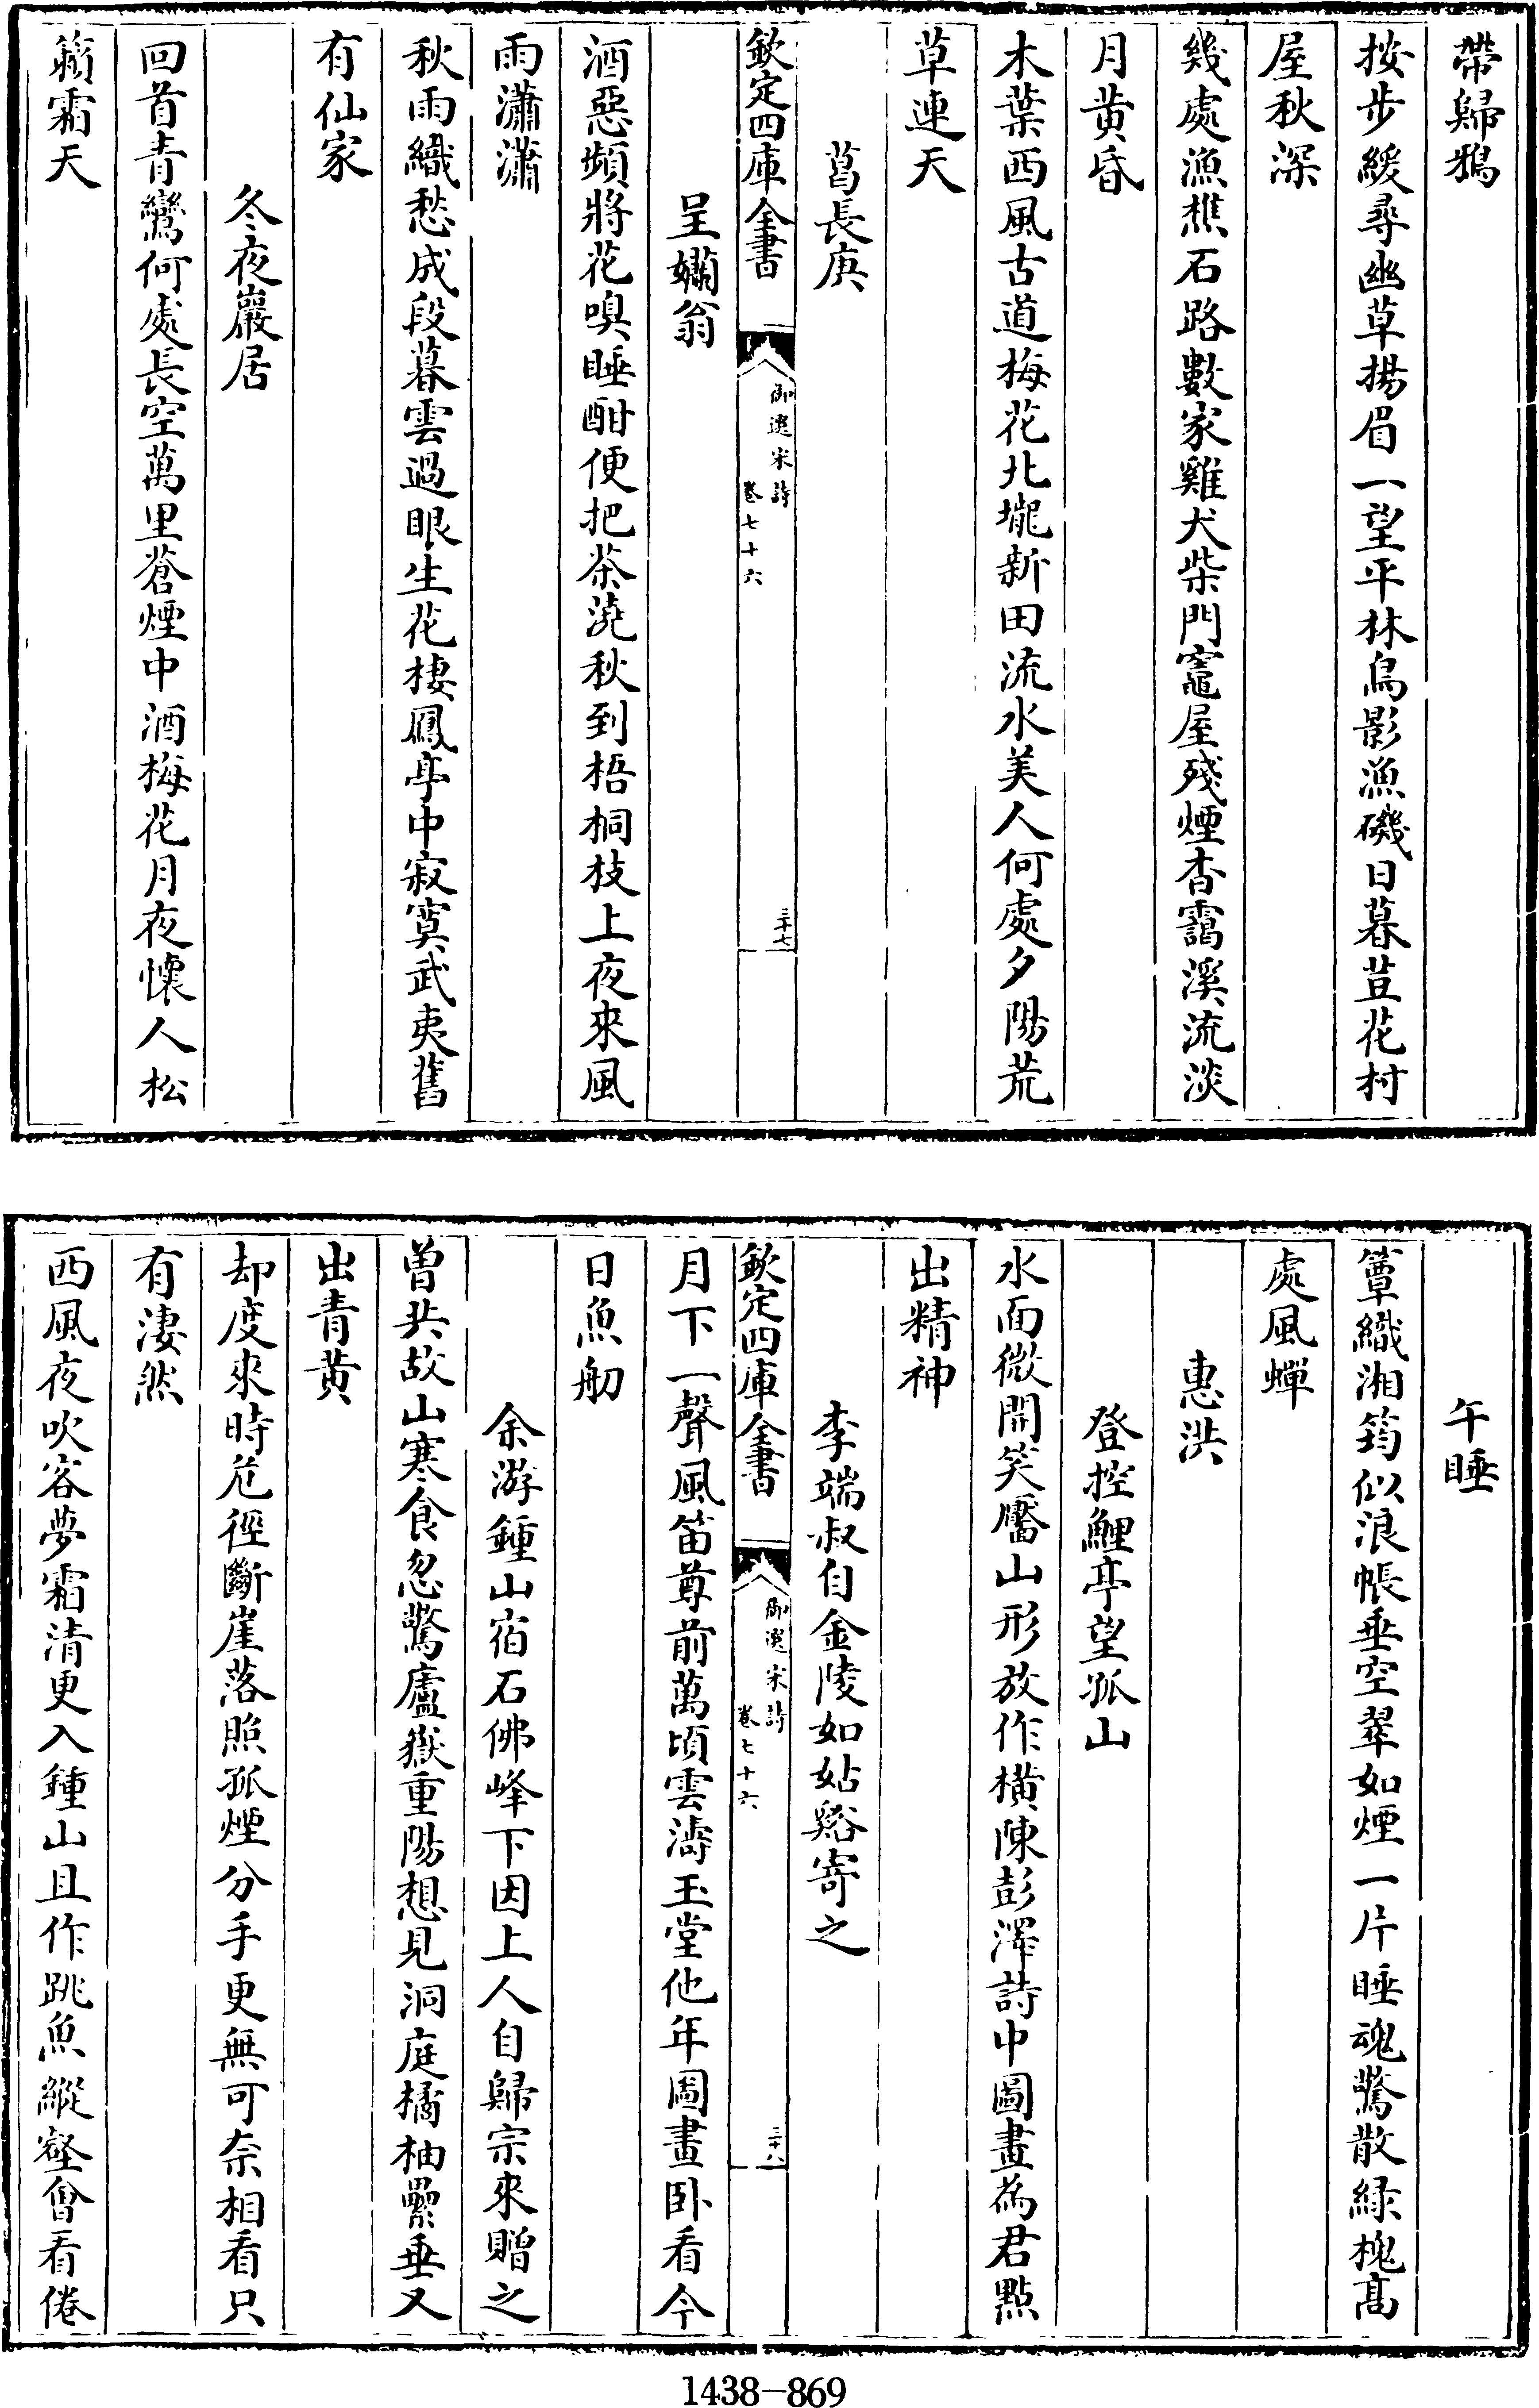 帶歸鴉
按步緩尋幽草揚眉一望平林鳥影漁磯日暮荳花村
屋秋深
幾處漁樵石路數家雞犬柴門竈屋殘煙杳靄溪流淡
月黄昏
木葉西風古道梅花北壠新田流水美人何處夕陽荒
草連天
葛長庚
欽定四庫全書
御選宋詩
卷七十六
三十七
呈嬾翁
酒惡頻將花嗅睡酣便把茶澆秋到梧桐枝上夜來風
雨瀟瀟
秋雨織愁成段暮雲過眼生花棲鳳亭中寂寞武夷舊
有仙家
冬夜巖居
回首青鸞何處長空萬里蒼煙中酒梅花月夜懷人松
籟霜天
午睡
簟織湘筠似浪帳垂空翠如煙一片睡魂驚散緑槐髙
處風蟬
惠洪
登控鯉亭望孤山
水面微開笑靨山形放作横陳彭澤詩中圖畫為君點
出精神
李端叔自金陵如姑谿寄之
欽定四庫全書
御選宋詩
卷七十六
三十八
月下一聲風笛尊前萬頃雲濤玉堂他年圖畫卧看今
日魚舠
余游鍾山宿石佛峰下因上人自歸宗來贈之
曽共故山寒食忽驚廬嶽重陽想見洞庭橘柚纍垂又
出青黄
却度來時危徑斷崖落照孤煙分手更無可奈相看只
有淒然
西風夜吹客夢霜清更入鍾山且作跳魚縱壑會看倦
1438-869